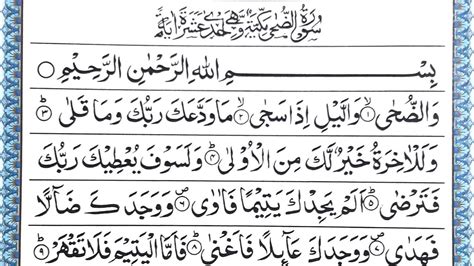 سُورَةُ الضُّحٰى مَكِّيَّةٌ وَّهِيَ اِحْدٰى عَشَرَةَ اٰيَةً
بِسْمِ اللهِ الرَّحْمٰنِ الرَّحِيْمِ ○
وَالضُّحٰى ۝۱ وَالَّيْلِ اِذَا سَجٰى ۝۲ مَا وَدَّعَكَ رَبُّكَ وَمَا قَلٰى ۝۳
وَلَلْاٰخِرَةُ خَيْرٌ لَّكَ مِنَ الْاُوْلٰى ۝۴ وَلَسَوْفَ يُعْطِيْكَ رَبُّكَ
فَتَرْضٰى ۝۵ اَلَمْ يَجِدْكَ يَتِيْمًا فَاٰوٰى ۝۶ وَوَجَدَكَ ضَآلًّا
فَهَدٰى ۝۷ وَوَجَدَكَ عَآئِلًا فَاَغْنٰى ۝۸ فَاَمَّا الْيَتِيْمَ فَلَا تَقْهَرْ ۝۹